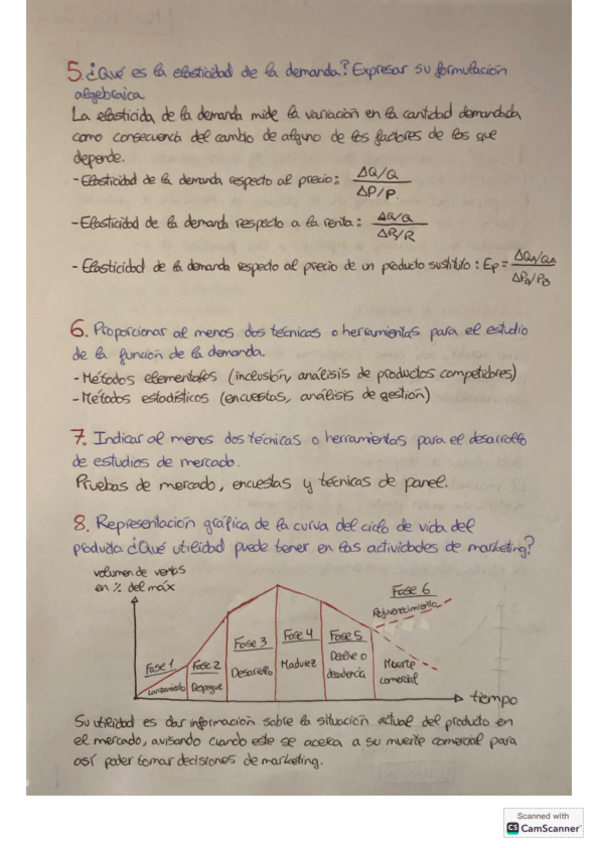 5. ¿Qué es la elasticidad de la demanda? Expresar su formulación
algebraica.
La elasticida de la demanda mide la variación en la cantidad demandada
como consecuencia del cambio de alguno de los factores de los que
depende.
- Elasticidad de la demanda respecto al precio: ΔQ/Q / ΔP/P.
- Elasticidad de la demanda respecto a la renta: ΔQ/Q / ΔR/R
- Elasticidad de la demanda respecto al precio de un producto sustituto: Ep = ΔQA/QA / ΔPB/PB
6. Proporcionar al menos dos técnicas o herramientas para el estudio
de la función de la demanda.
- Métodos elementales (inclusión, análisis de productos competidores)
- Métodos estadísticos (encuestas, análisis de gestión)
7. Indicar al menos dos técnicas o herramientas para el desarrollo
de estudios de mercado.
Pruebas de mercado, encuestas y técnicas de panel.
8. Representación gráfica de la curva del ciclo de vida del
producto ¿Qué utilidad puede tener en las actividades de marketing?
volumen de ventas
en % del máx
Fase 1
Lanzamiento
Fase 2
Despegue
Fase 3
Desarrollo
Fase 4
Madurez
Fase 5
Declive o
decadencia
Fase 6
Muerte
comercial
tiempo
Su utilidad es dar información sobre la situación actual del producto en
el mercado, avisando cuando este se acerca a su muerte comercial para
así poder tomar decisiones de marketing.
Scanned with
CS CamScanner